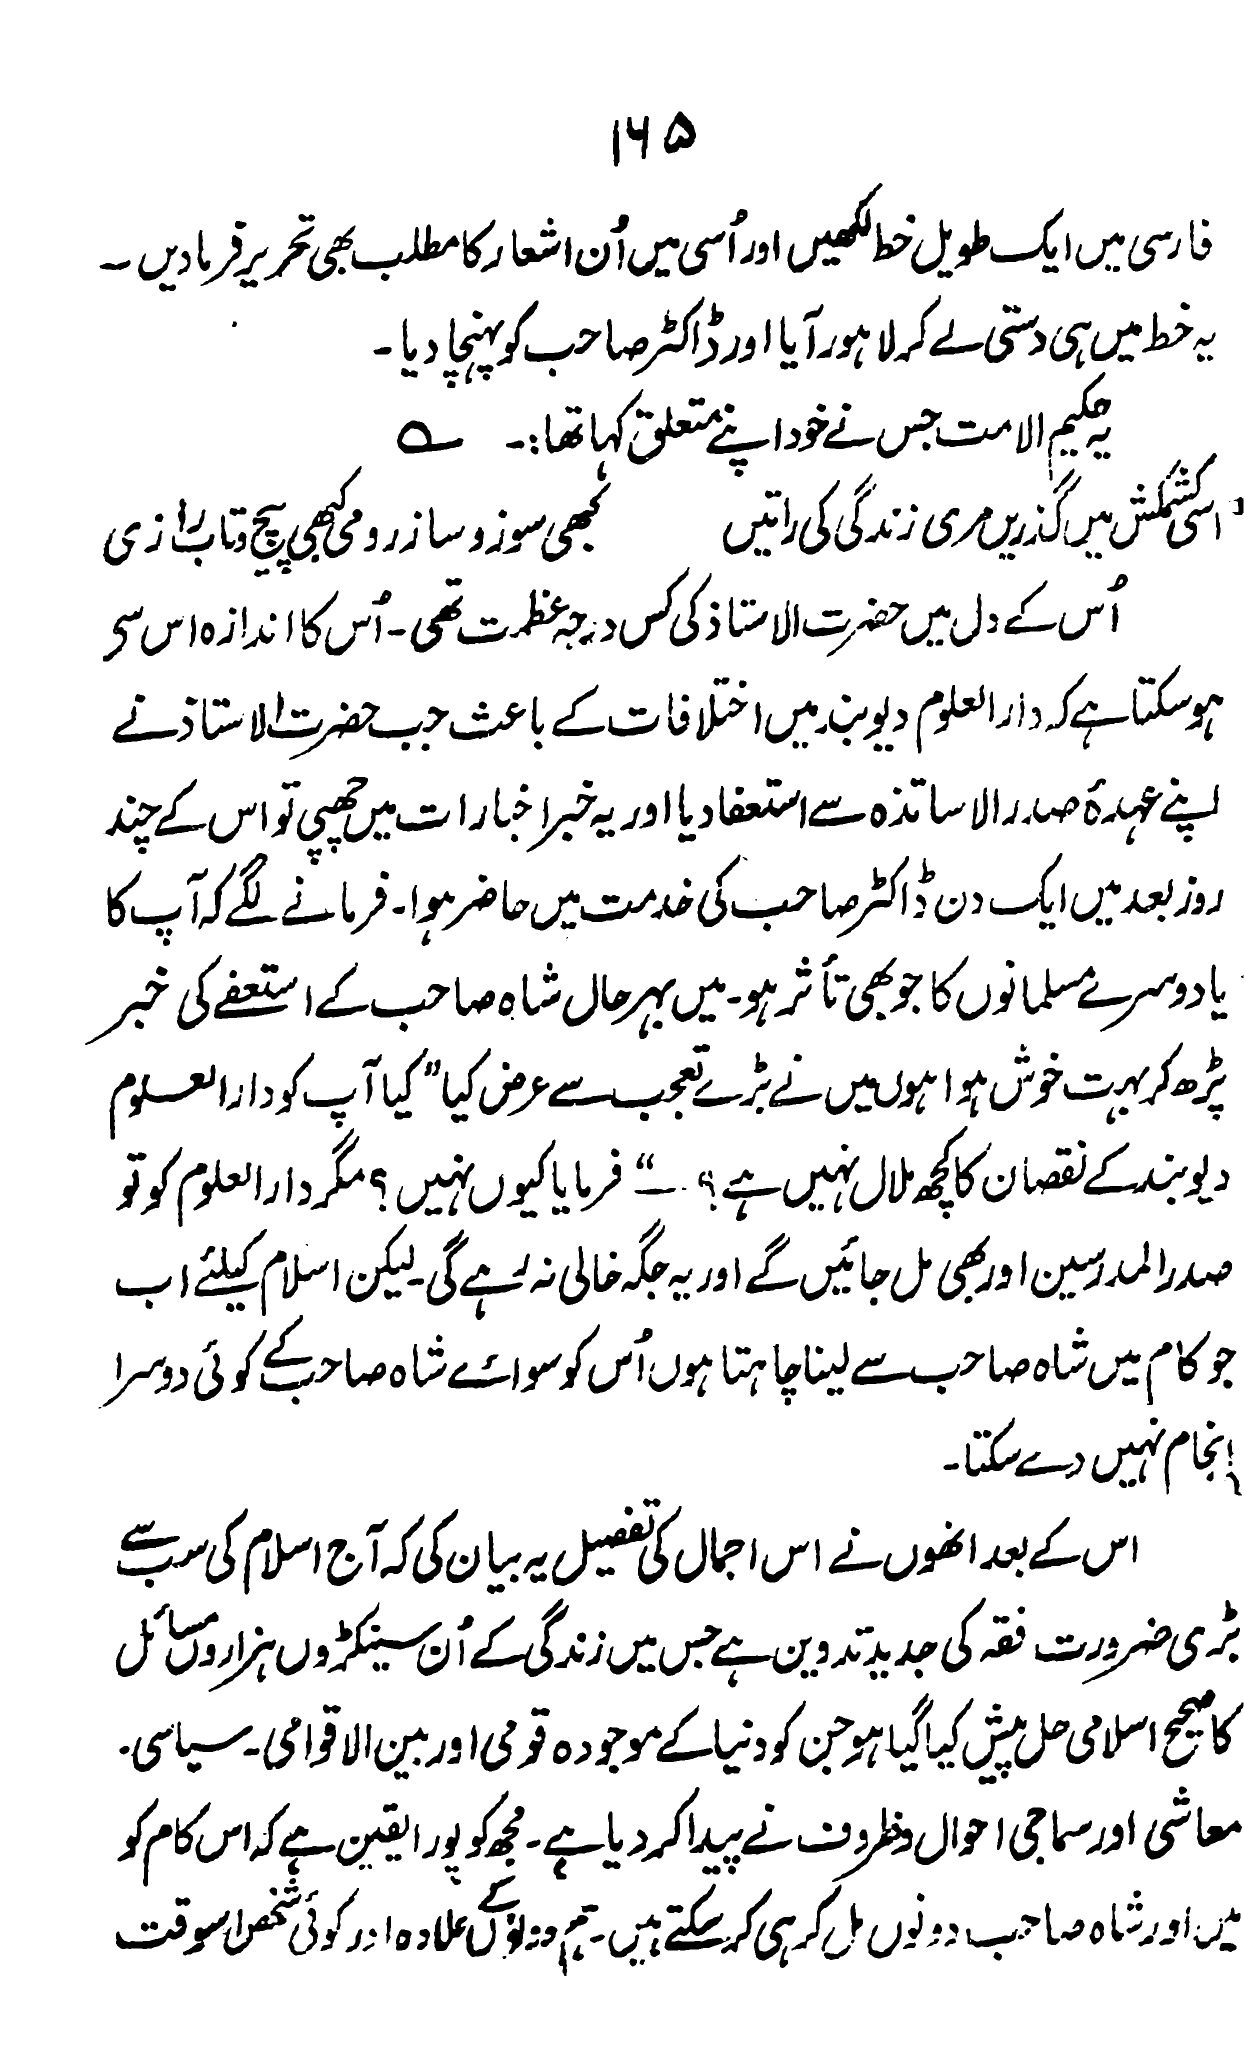 ۱۶۵
فارسی میں ایک طویل خط لکھیں اور اُسی میں اُن اشعار کا مطلب بھی تحریر فرمادیں ۔
یہ خط میں ہی دستی لے کر لاہور آیا اور ڈاکٹر صاحب کو پہنچا دیا ۔
یہ حکیم الامت جس نے خود اپنے متعلق کہا تھا :۔ ؎
اسی کشمکش میں گذریں مری زندگی کی راتیں کبھی سوز و ساز رومی کبھی پیچ و تاب رازی
اُس کے دل میں حضرت الاستاذ کی کس درجہ عظمت تھی ۔ اُس کا اندازہ اس سی
ہوسکتا ہے کہ دارالعلوم دیوبند میں اختلافات کے باعث جب حضرت الاستاذ نے
اپنے عہدۂ صدر الاساتذہ سے استعفا دیا اور یہ خبر اخبارات میں چھپی تو اس کے چند
روز بعد میں ایک دن ڈاکٹر صاحب کی خدمت میں حاضر ہوا ۔ فرمانے لگے کہ آپ کا
یا دوسرے مسلمانوں کا جو بھی تأثر ہو ۔ میں بہرحال شاہ صاحب کے استعفے کی خبر
پڑھ کر بہت خوش ہوا ہوں میں نے بڑے تعجب سے عرض کیا " کیا آپ کو دارالعلوم
دیوبند کے نقصان کا کچھ ملال نہیں ہے ؟ ۔" فرمایا کیوں نہیں ؟ مگر دارالعلوم کو تو
صدر المدرسین اور بھی مل جائیں گے اور یہ جگہ خالی نہ رہے گی ۔ لیکن اسلام کیلئے اب
جو کام میں شاہ صاحب سے لینا چاہتا ہوں اُس کو سوائے شاہ صاحب کے کوئی دوسرا
انجام نہیں دے سکتا ۔
اس کے بعد انھوں نے اس اجمال کی تفصیل یہ بیان کی کہ آج اسلام کی سب سے
بڑی ضرورت فقہ کی جدید تدوین ہے جس میں زندگی کے اُن سینکڑوں ہزاروں مسائل
کا صحیح اسلامی حل پیش کیا گیا ہو جن کو دنیا کے موجودہ قومی اور بین الاقوامی ۔ سیاسی ۔
معاشی اور سماجی احوال و ظروف نے پیدا کر دیا ہے ۔ مجھ کو پورا یقین ہے کہ اس کام کو
میں اور شاہ صاحب دونوں مل کر ہی کر سکتے ہیں ۔ ہم دونوں کے علاوہ اور کوئی شخص اسوقت